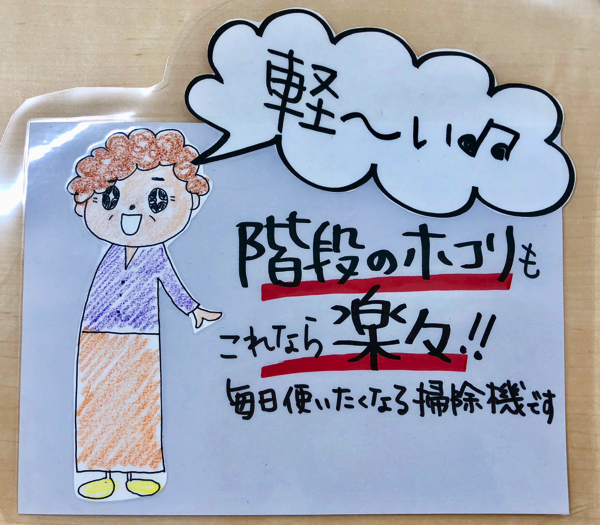 軽〜い♫
階段のホコリも
これなら楽々!!
毎日使いたくなる掃除機です